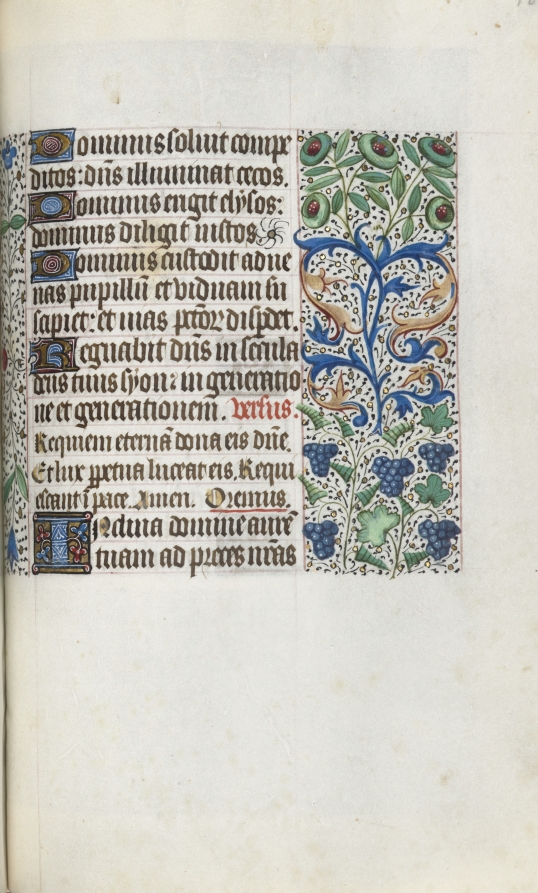 Dominus soluit compe
ditos: dns illuminat cecos.
Dominus erigit elysos:
dominus diligit iustos
Dominus custodit adue
nas pupillũ et viduam su
scipiet: et uias pctoꝝ disp̃det.
Regnabit dñs in secula
deus tuus syon: in generatio
ne et generationem. Versus.
Requiem eternã dona eis dñe.
Et lux ꝑpetua luceat eis. Requi
escant ĩ pace. Amen. Oremus.
Inclina domine aurẽ
tuam ad preces nr̃as